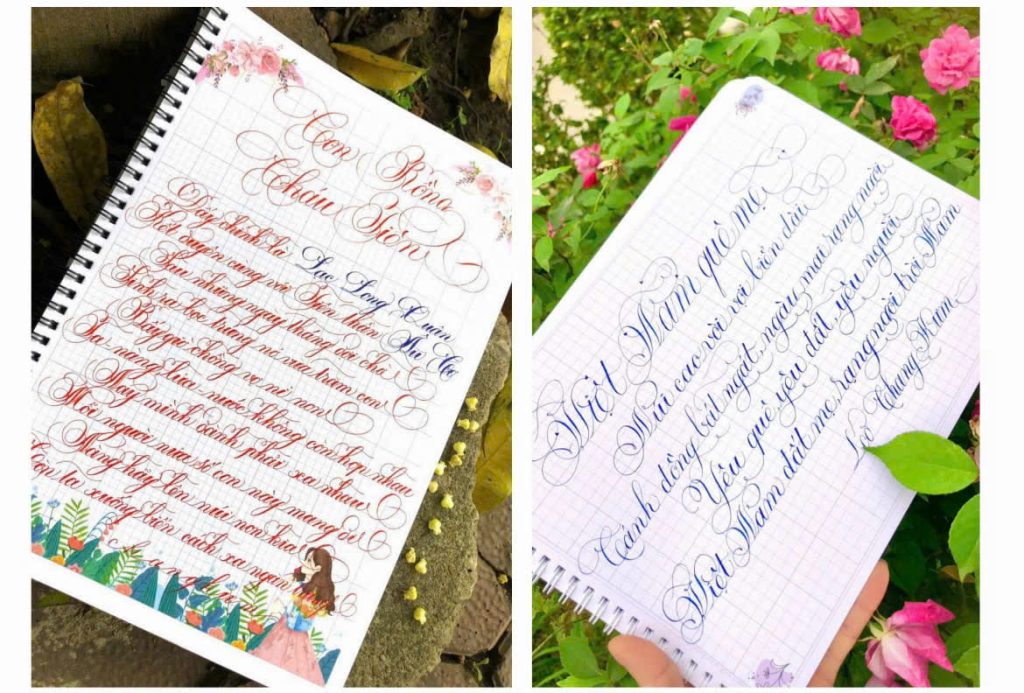 Con Rồng
Cháu Tiên
Đây chính là Lạc Long Quân
Kết duyên cùng với Tiên nhân Âu Cơ
Sau những ngày tháng đợi chờ
Sinh ra bọc trứng nở vừa trăm con
Bây giờ chồng vợ nỉ non
Ta nàng lửa nước không còn hợp nhau
Nay mình đành phải xa nhau
Mỗi người nửa số con này mang đi
Nàng hãy lên núi non kia
Con ta xuống biển cách xa ngàn
Việt Nam quê mẹ
Núi cao vời vợi và biển dâu
Cánh đồng bát ngát ngàu mai rạng ngời
Yêu quê yêu đất yêu người
Việt Nam đất mẹ rạng ngời trời Nam
Cỗ Thăng Trầm